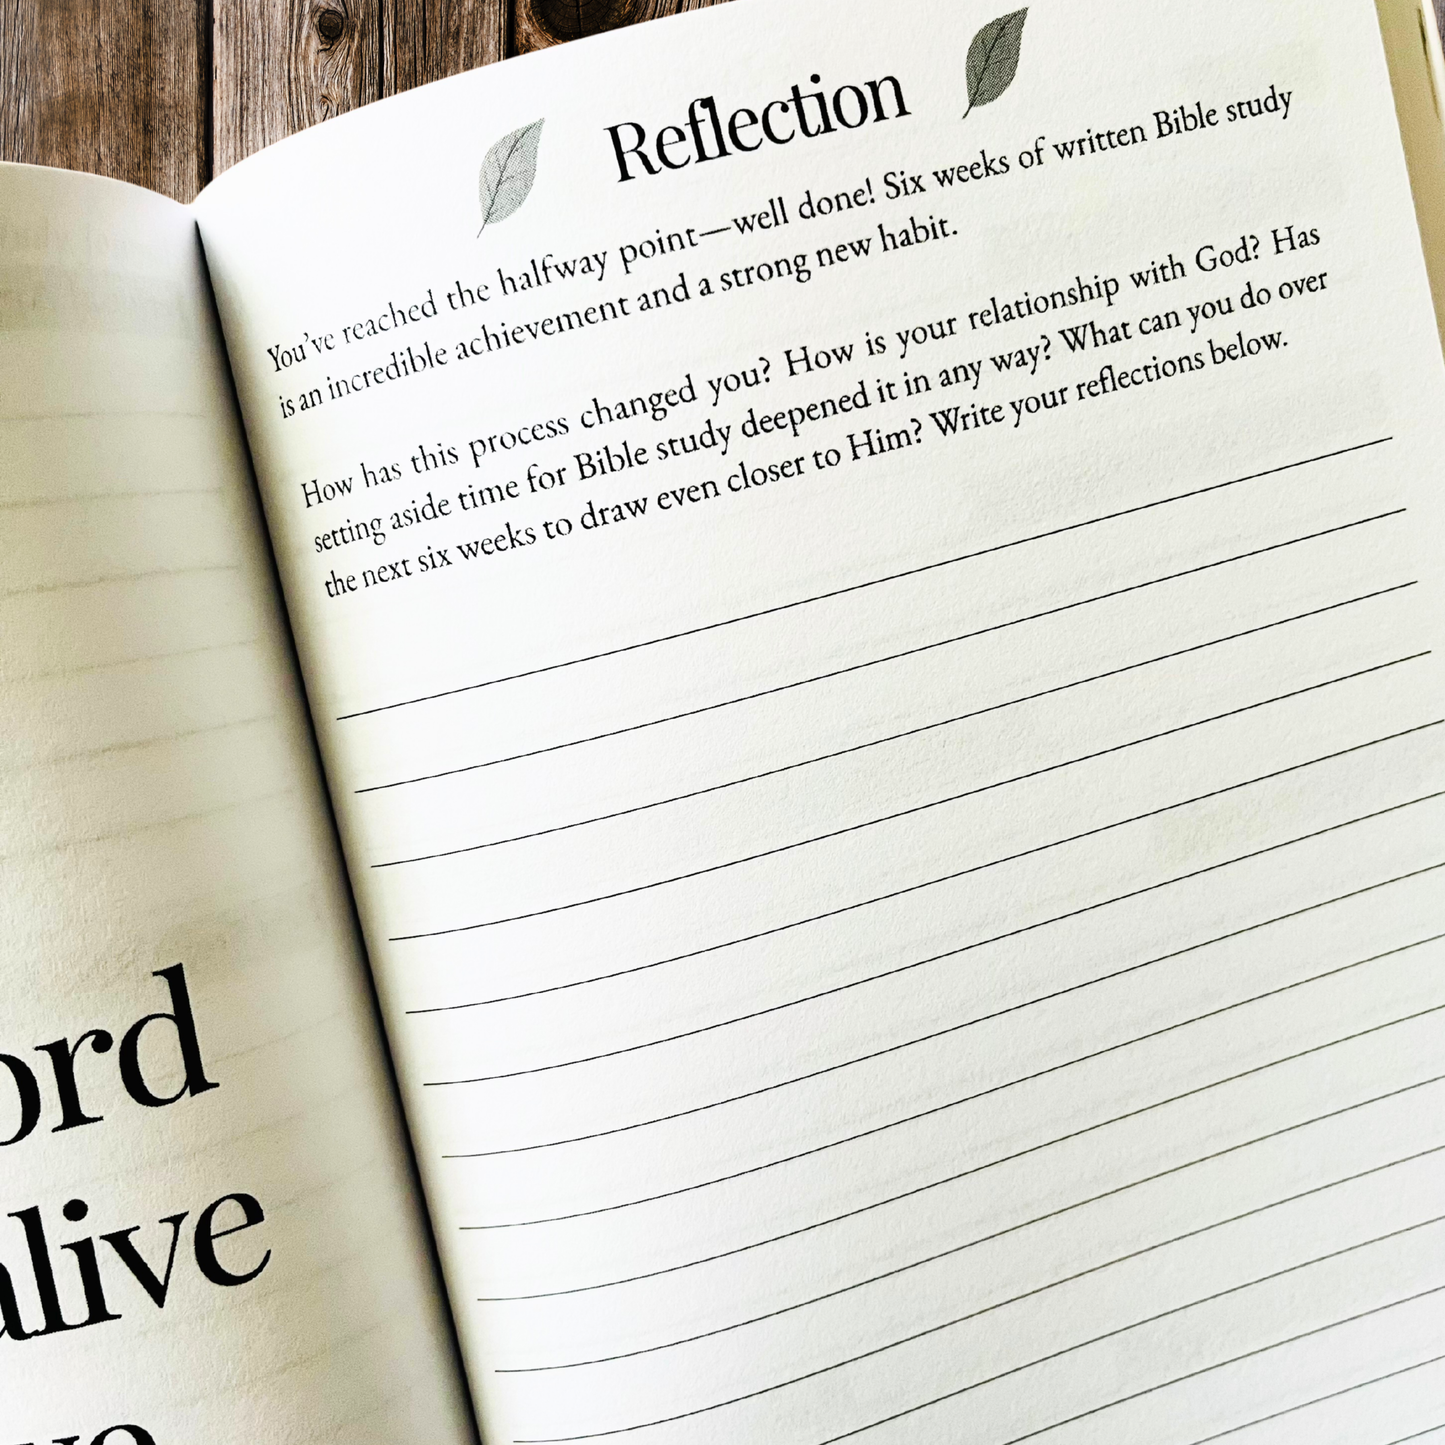 ord
alive
Reflection
You've reached the halfway point—well done! Six weeks of written Bible study
is an incredible achievement and a strong new habit.
How has this process changed you? How is your relationship with God? Has
setting aside time for Bible study deepened it in any way? What can you do over
the next six weeks to draw even closer to Him? Write your reflections below.